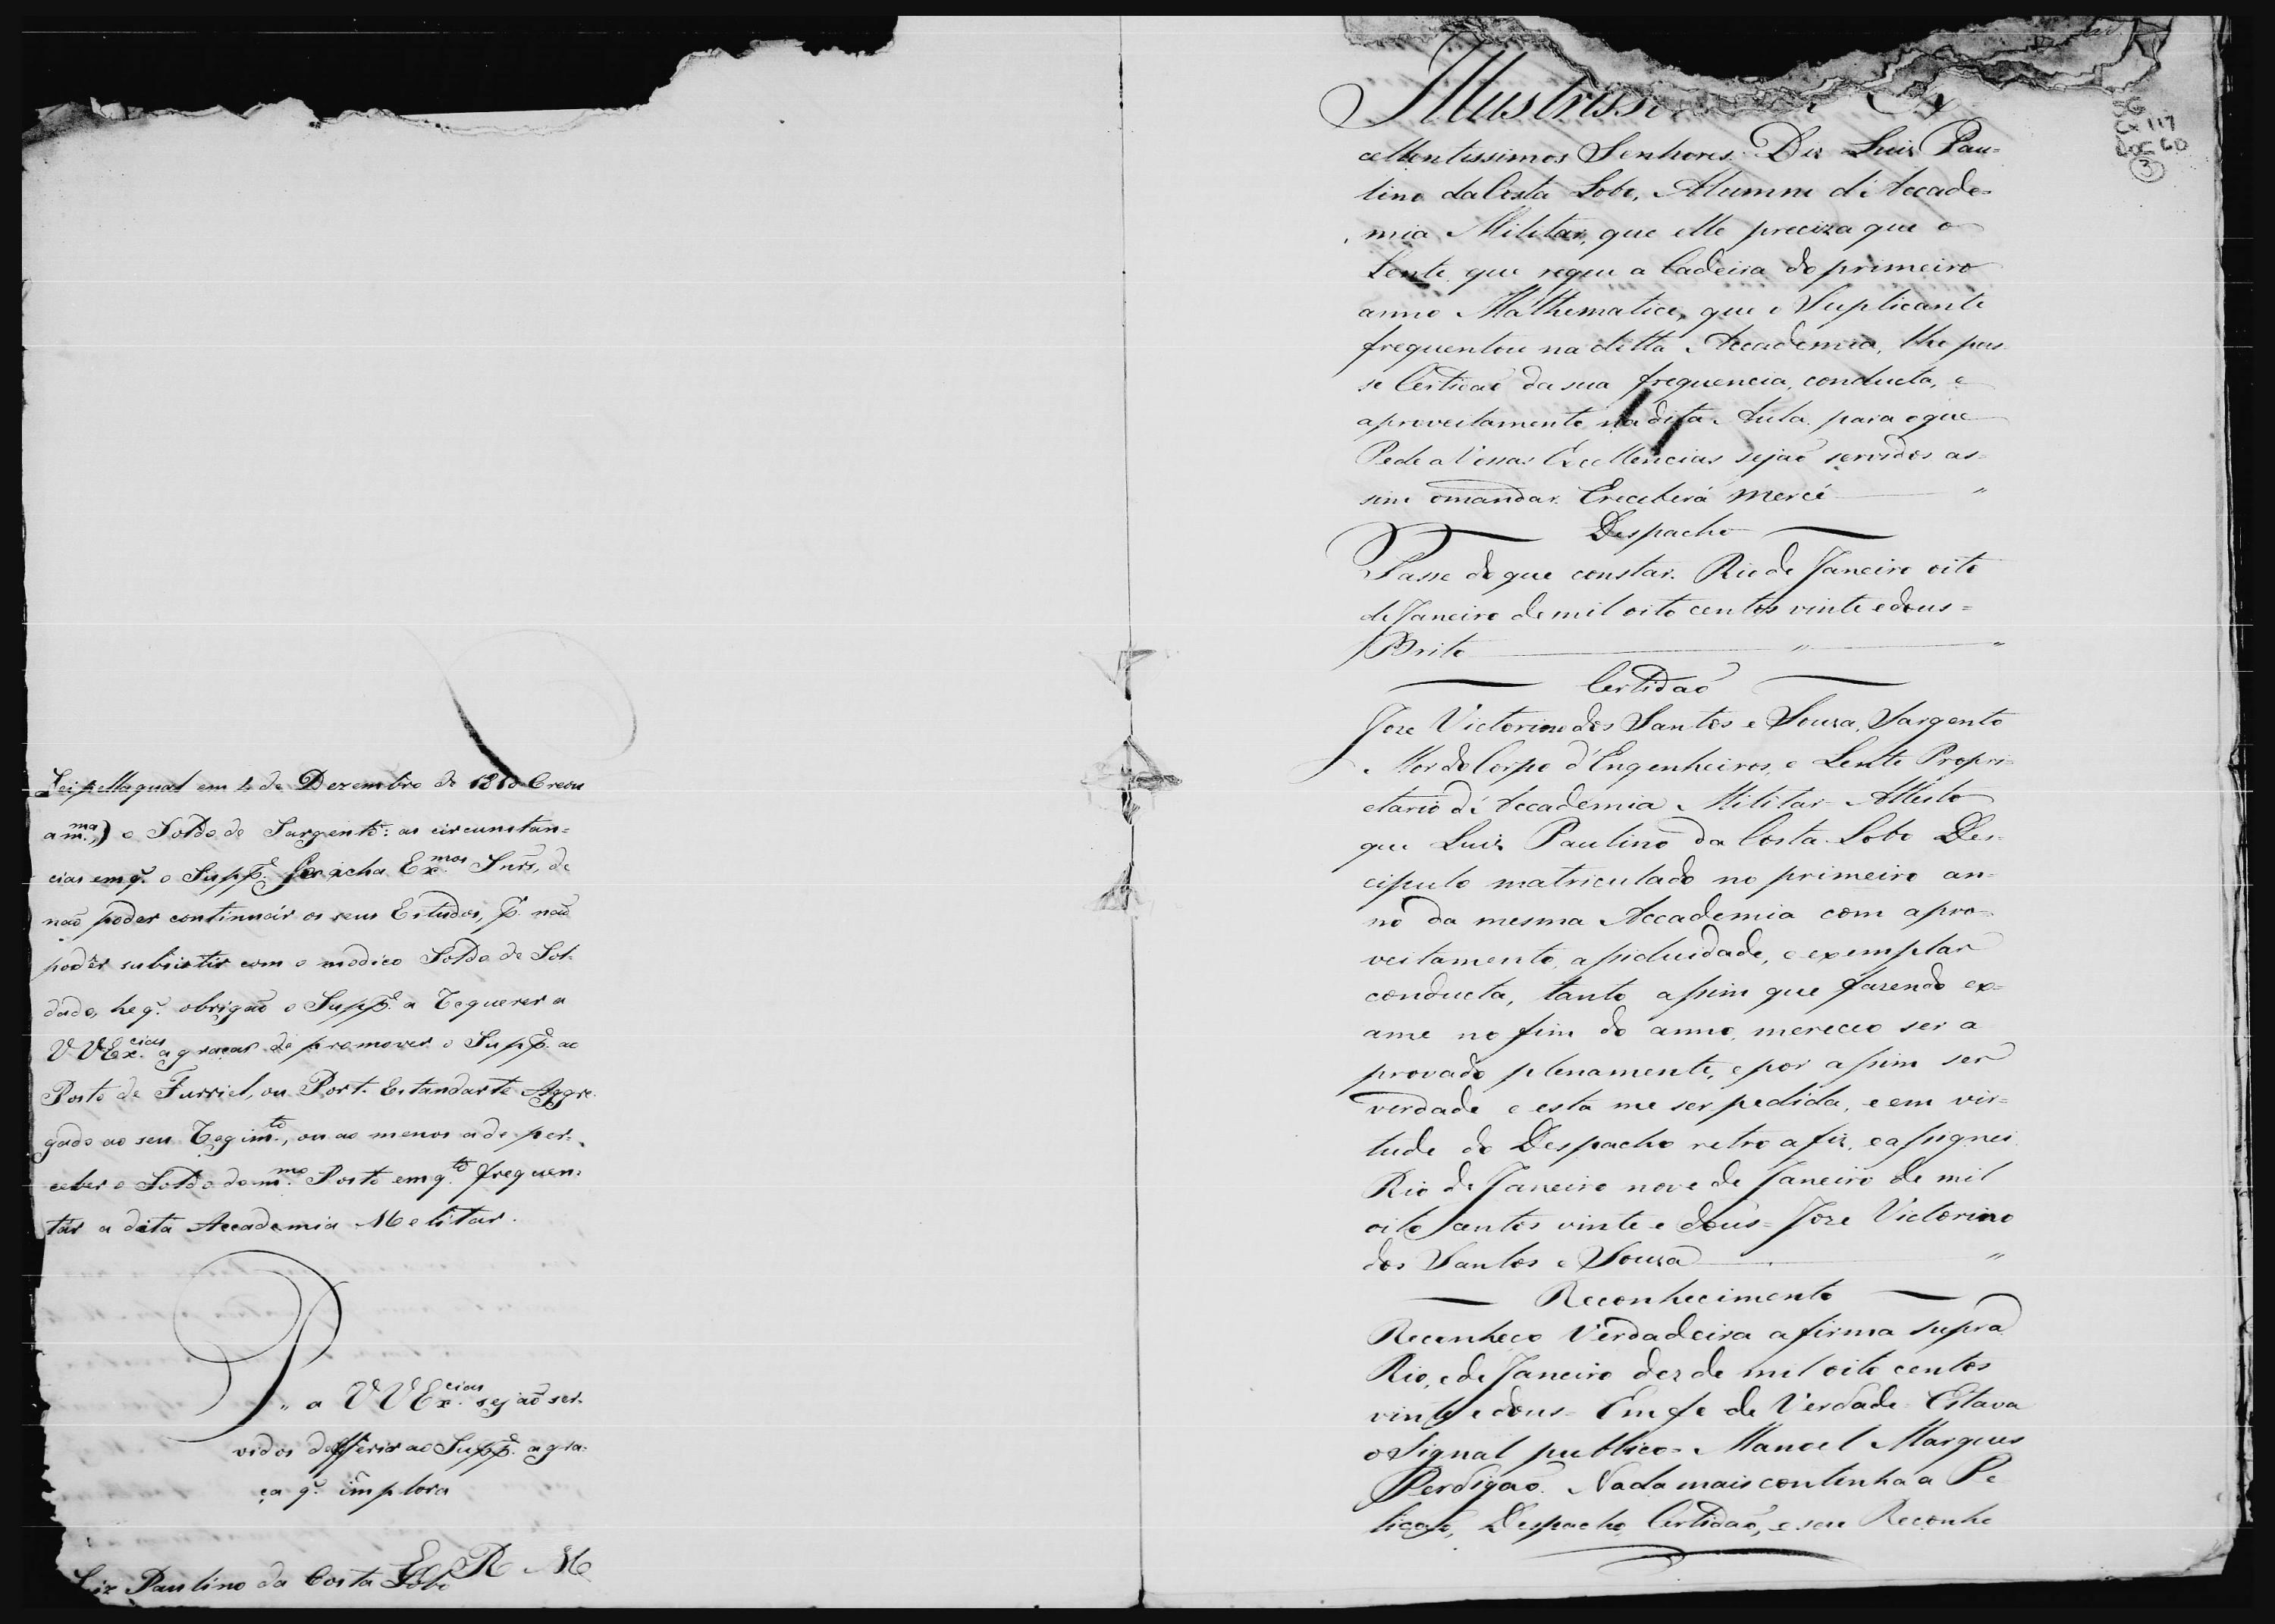 Lei pella qual em 4 de Dezembro de 1810 Creou
a m.ma,) o Soldo de Sargento: as circunstan=
cias em q.' o Supp.e se acha Ex.mos Snrs, de
naõ poder continuár os seus Estudos, p.r naõ
podêr subsistir com o modico Soldo de Sol-
dado, he q.' obrigaõ o Supp.e a Requerer a
V V Ex.cias a graça de promover o Supp.e ao
Posto de Furriel, ou Port. Estandarte Aggre-
gado ao seu Regim.to, ou ao menos a de per-
ceber o Soldo do m.mo Posto em q.to frequen-
tár a dita Accademia Melitar.
P. a V V Ex.cias sejaõ ser-
vidos defferir ao Supp.e a gra-
ça q.' implora
E R M
Luiz Paulino da Costa Lobo
117
60
3
Illustriss Ex
cellentissimos Senhores. Diz Luiz Pau=
lino da Costa Lobo, Alumno d'Accade=
mia Militar, que elle preciza que o
Lente que regeu a Cadeira do primeiro
anno Mathematico, que o Suplicante
frequentou na ditta Accademia, lhe pas
se Certidaõ da sua frequencia, conducta, e
aproveitamento na dita Aula para o que
Pede a Vossas Excellencias sejaõ servidos as=
sim o mandar. E receberá Mercê "
Despacho
Passe do que constar. Rio de Janeiro oito
de Janeiro de mil oito centos vinte e dous =
Brito " "
Certidaõ
Joze Victorino dos Santos e Souza, Sargento
Mor do Corpo d'Engenheiros, e Lente Propri=
etario d'Accademia Militar. Attesto
que Luiz Paulino da Costa Lobo Des=
cipulo matriculado no primeiro an=
no da mesma Accademia com apro=
veitamento, assiduidade, e exemplar
conducta, tanto assim que fazendo ex=
ame no fim do anno, mereceo ser a
provado plenamente, e por assim ser
verdade e esta me ser pedida, e em vir=
tude do Despacho retro a fiz, e assignei
Rio de Janeiro nove de Janeiro de mil
oito centos vinte e dous = Joze Victorino
dos Santos e Souza "
Reconhecimento
Reconheço Verdadeira a firma supra
Rio, e de Janeiro dez de mil oito centos
vinte e dous = Em fe de Verdade Estava
o Signal publico = Manoel Marques
Perdigaõ. Nada mais continha a Pe
ticaõ, Despacho, Certidaõ, e seu Reconhe